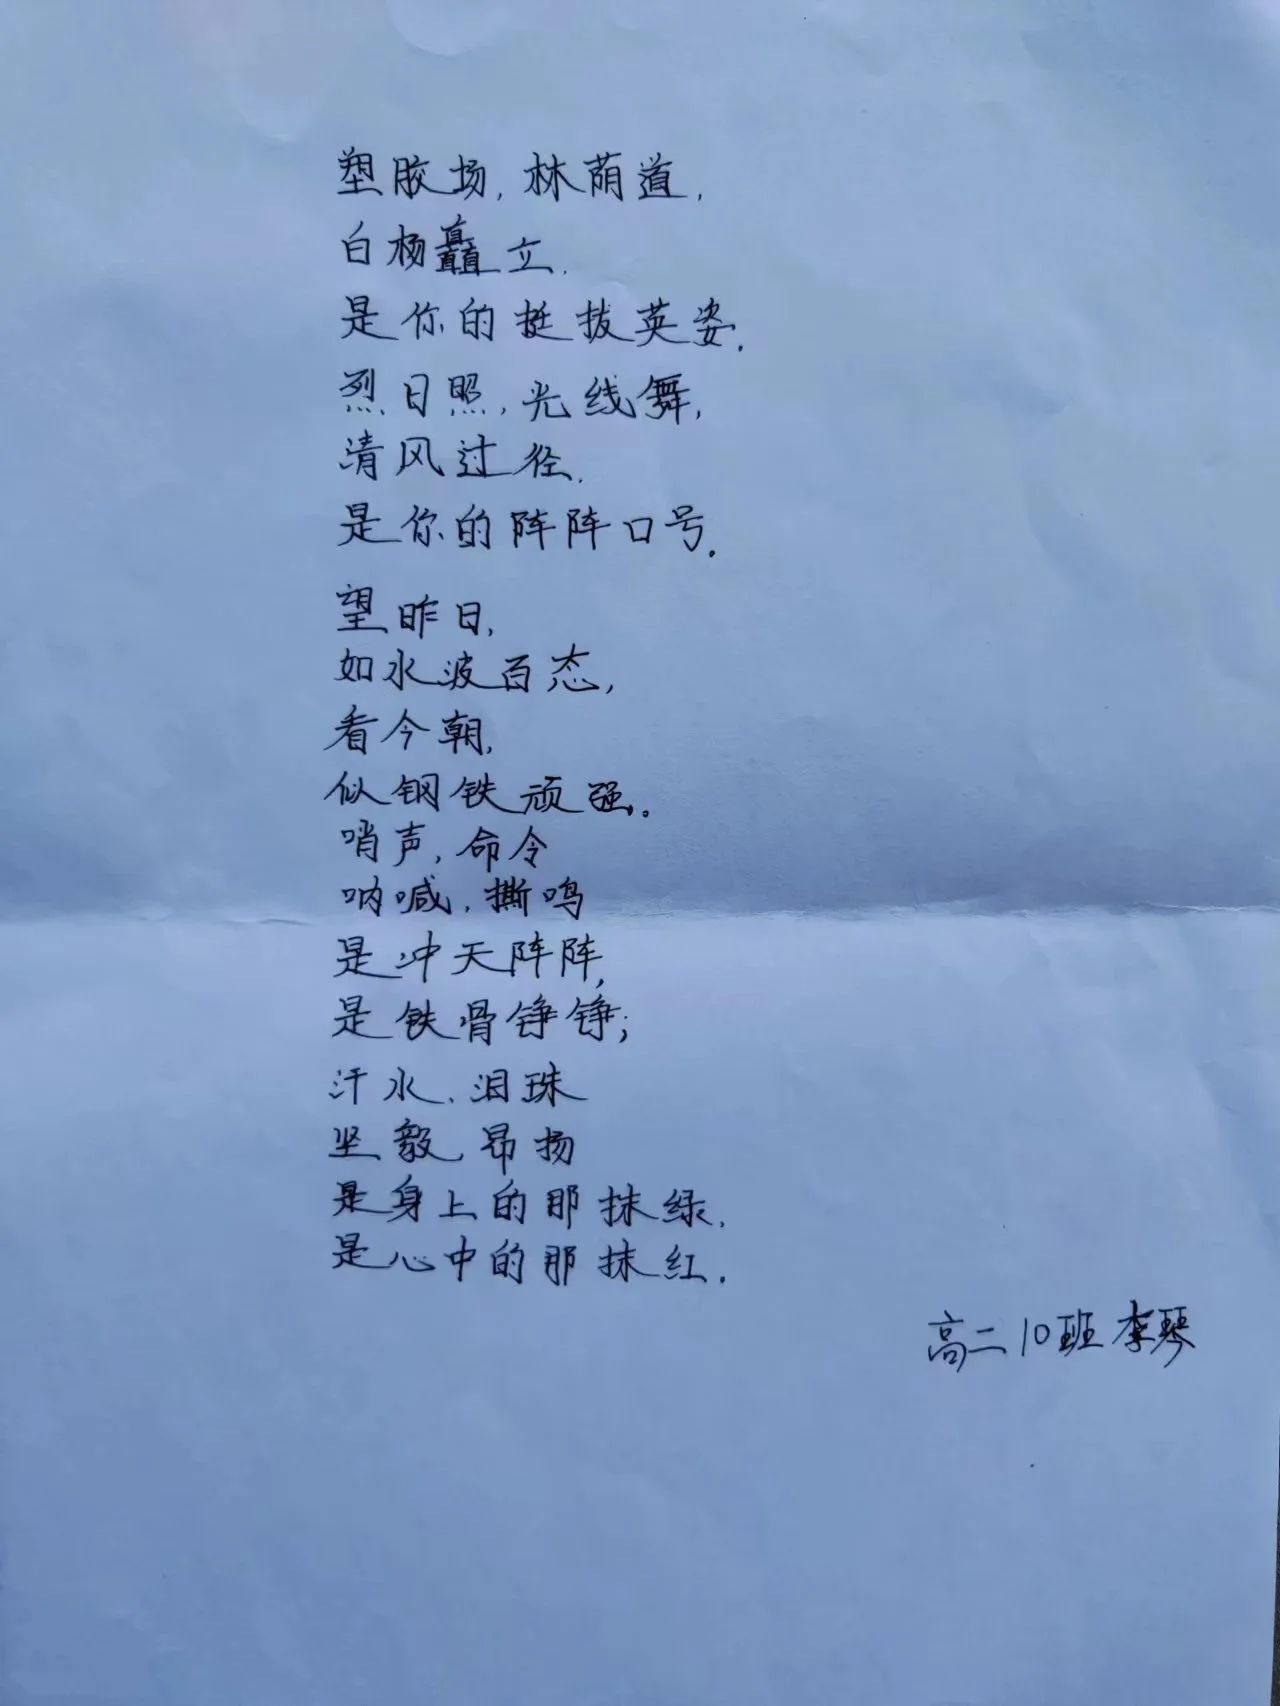 塑胶场,林荫道,
白杨矗立,
是你的挺拔英姿.
烈日照,光线舞,
清风过径,
是你的阵阵口号.
望昨日,
如水波百态,
看今朝,
似钢铁顽强。
哨声,命令
呐喊,撕鸣
是冲天阵阵,
是铁骨铮铮;
汗水、泪珠
坚毅昂扬
是身上的那抹绿,
是心中的那抹红.
高二10班李琴